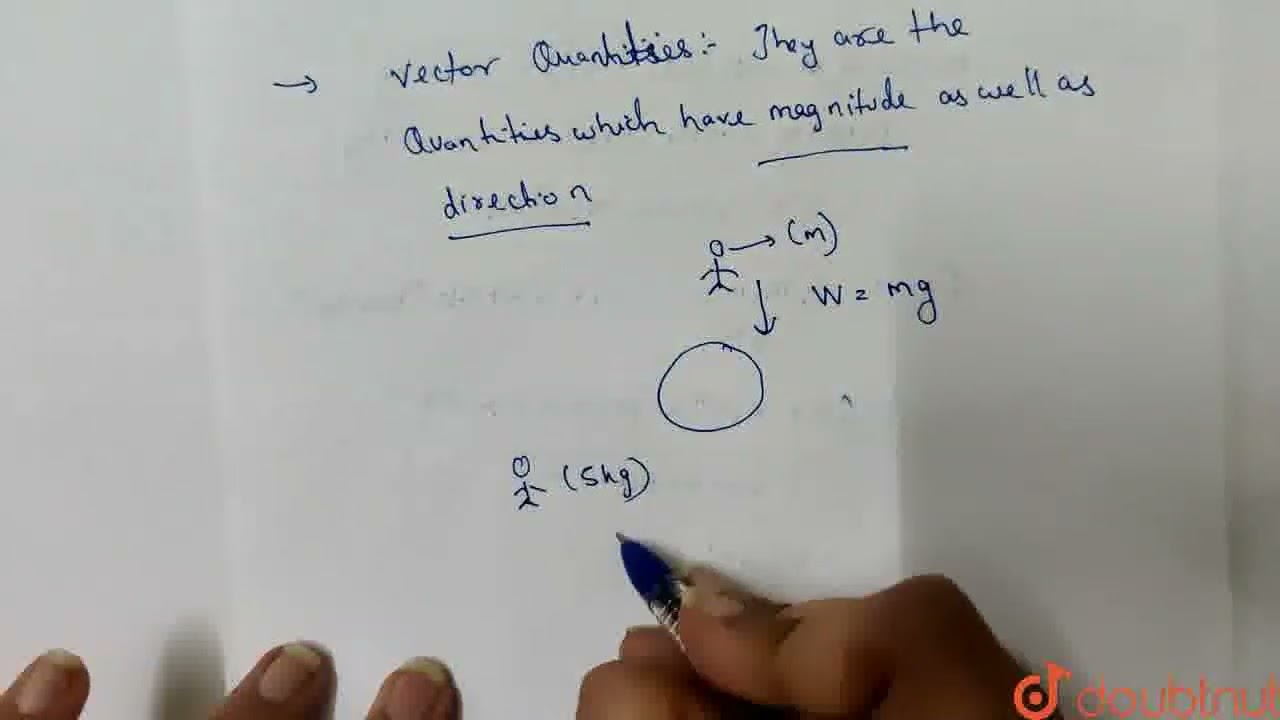 → Vector Quantities:- They are the
Quantities which have magnitude as well as
direction
→ (m)
W = mg
(5kg)
doubtnut